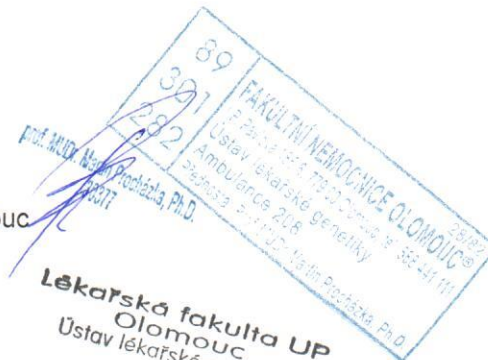 89
301
282
FAKULTNÍ NEMOCNICE OLOMOUC®
Ústav lékařské genetiky
Ambulance 208
prof. MUDr. Martin Procházka, Ph.D.
uc
Lékařská fakulta UP
Olomouc
Ústav lékařské